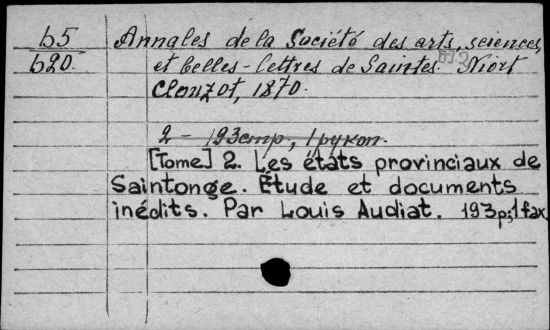 b5
b20.
Annales de la Société des arts, sciences,
et belles-lettres de Saintes. Niort
Clouzot, 1870.
2 - 193 стр., 1 рукоп.
[Tome] 2. Les états provinciaux de
Saintonge. Étude et documents
inédits. Par Louis Audiat. 193p; 1 fax